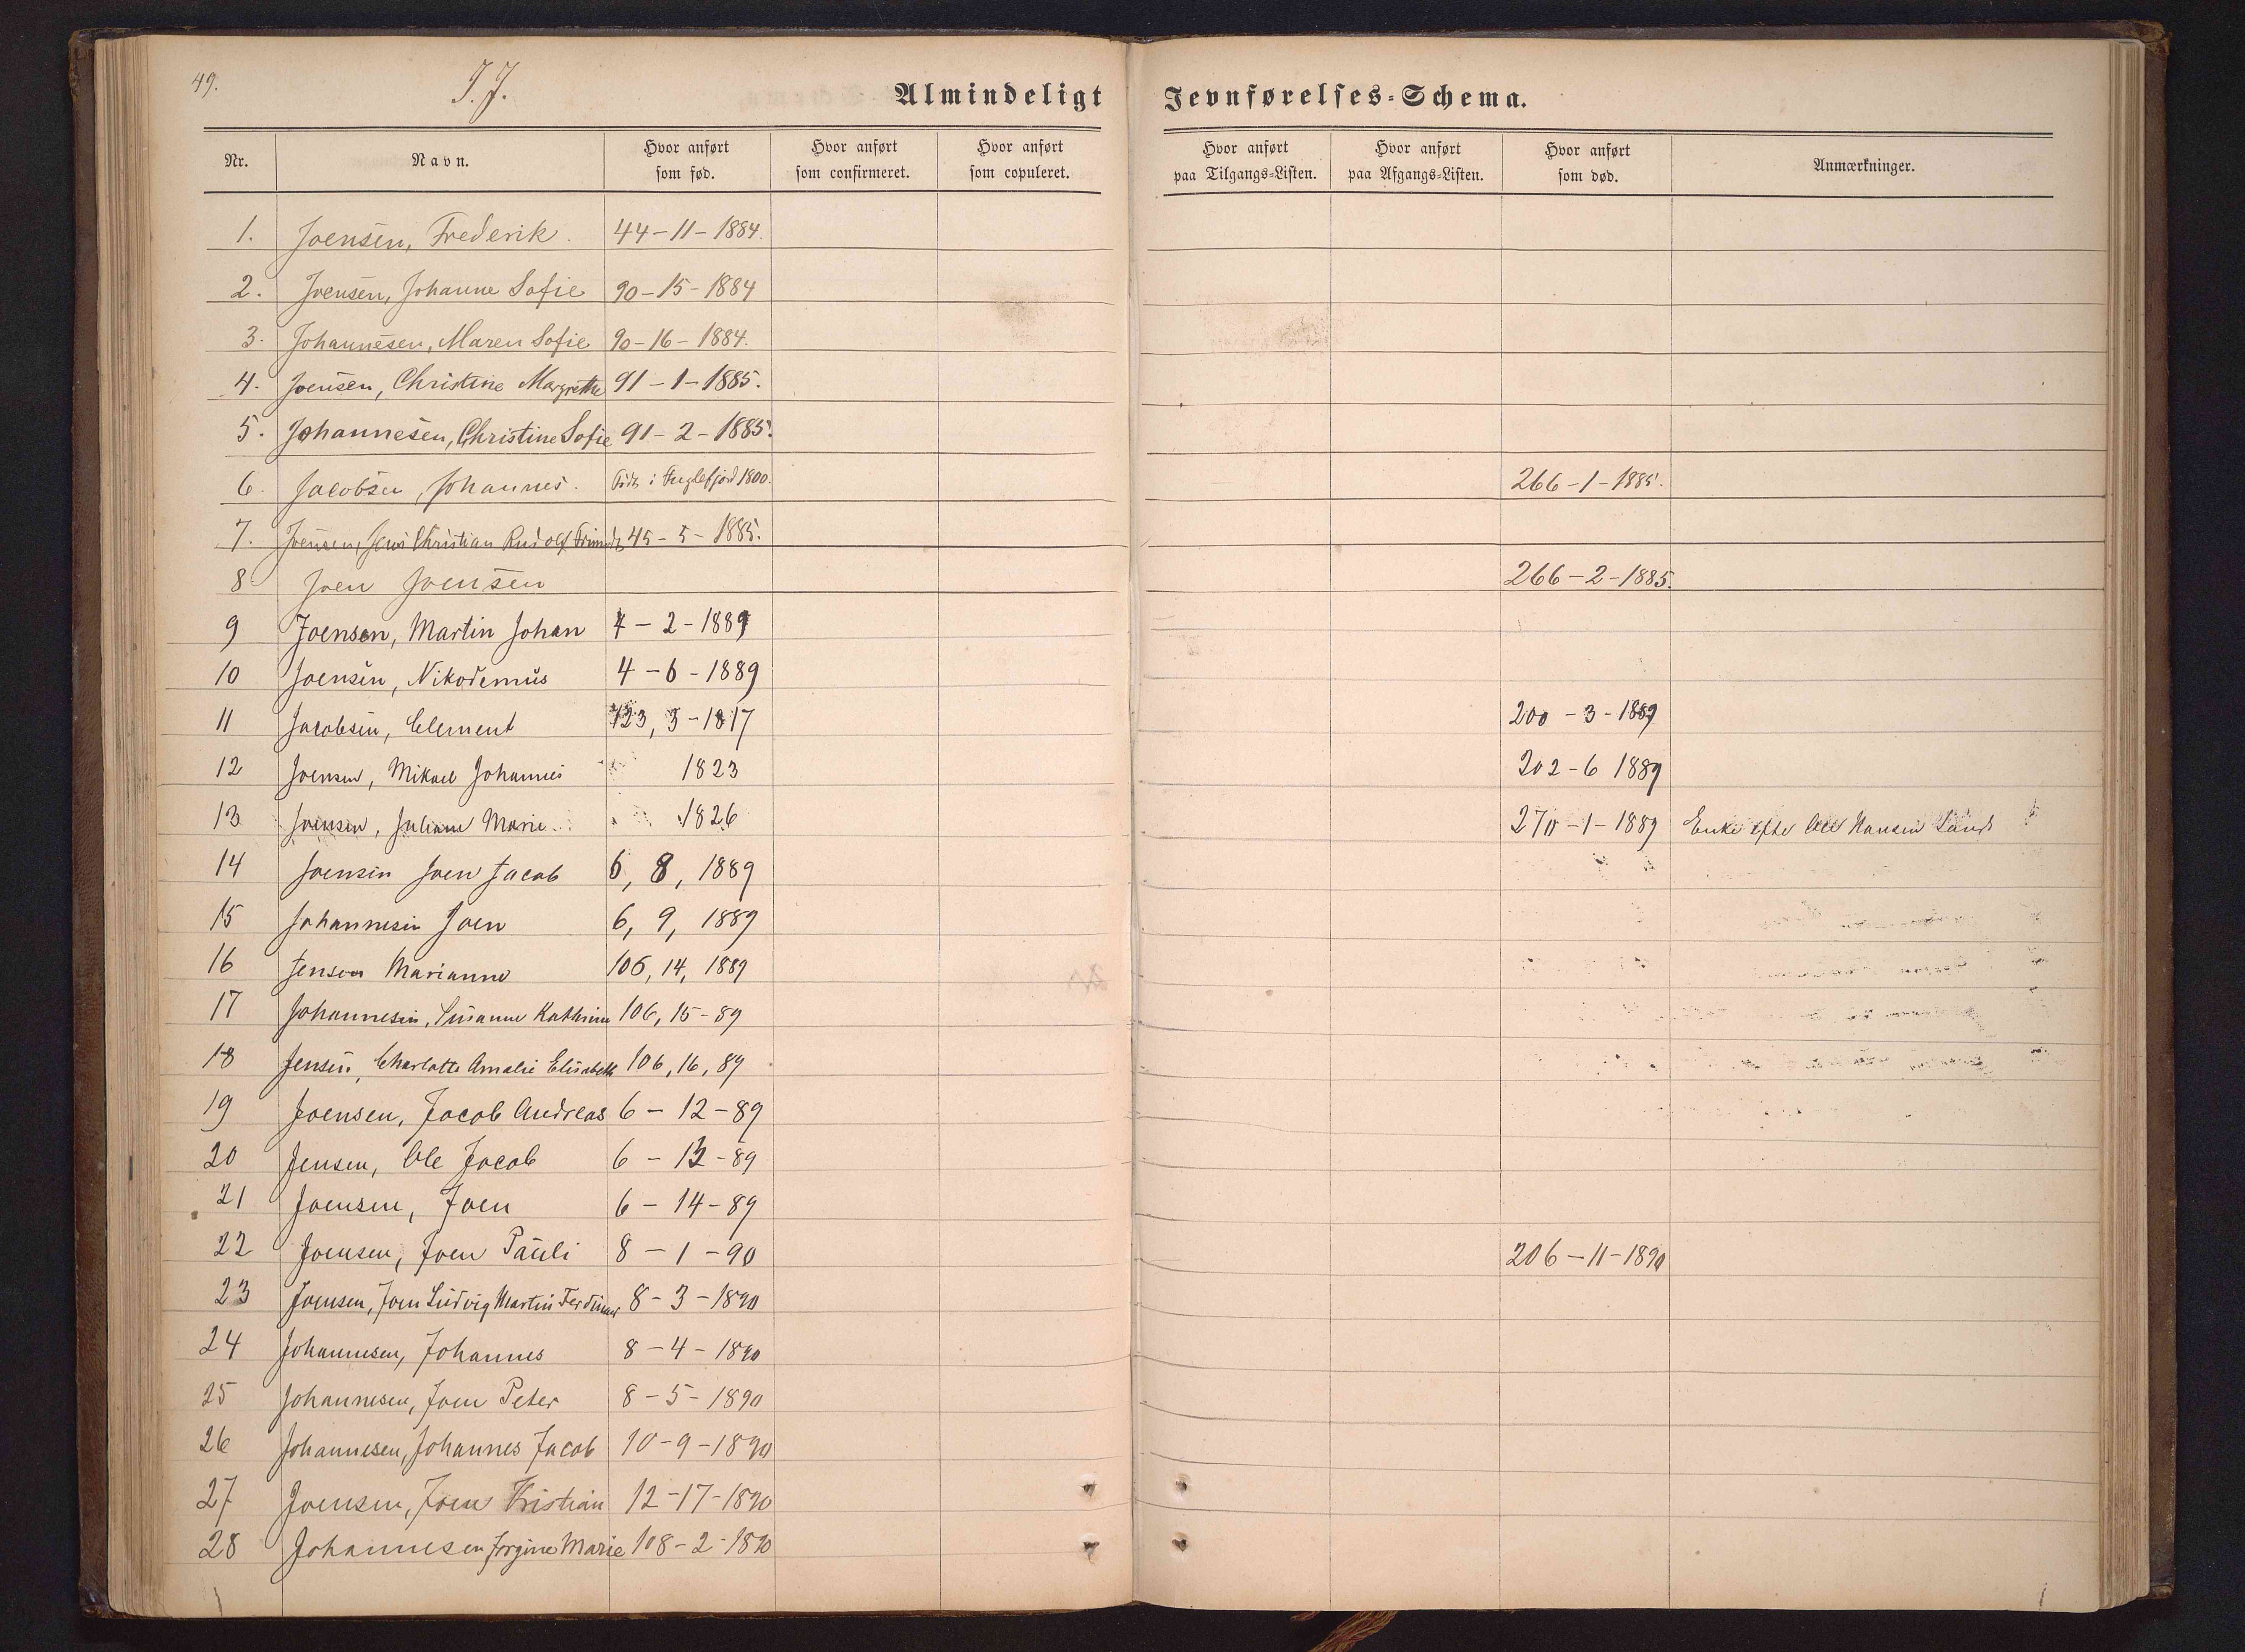 49.
I. J.
Almindeligt Jevnførelses-Schema.
Nr. Navn. Hvor anført som fød. Hvor anført som confirmeret. Hvor anført som copuleret. Hvor anført paa Tilgangs-Listen. Hvor anført paa Afgangs-Listen. Hvor anført som død. Anmærkninger.
1. Joensen, Frederik. 44-11-1884.
2. Joensen, Johanne Sofie 90-15-1884
3. Johannesen, Maren Sofie 90-16-1884.
4. Joensen, Christine Margrethe 91-1-1885.
5. Johannesen, Christine Sofie 91-2-1885.
6. Jacobsen, Johannes. i Fuglefjord 1800. 266-1-1885.
7. Joensen, Jens Christian Rudolf 45-5-1885.
8. Joen Joensen 266-2-1885.
9 Joensen, Martin Johan 4-2-1889
10 Joensen, Nikodemus 4-6-1889
11 Jacobsen, Clement 123, 3-1817 200-3-1889
12 Joensen, Mikael Johannes 1823 202-6 1889
13 Joensen, Juliane Marie 1826 270-1-1889 Enke efter Ole Hansen Sand
14 Joensen Joen Jacob 6, 8, 1889
15 Johannesen Joen 6, 9, 1889
16 Jensen Marianne 106, 14, 1889
17 Johannesen, Susanne Kathrine 106, 15-89
18 Jensen, Charlotte Amalie Elisabeth 106, 16, 89
19 Joensen, Jacob Andreas 6-12-89
20 Jensen, Ole Jacob 6-13-89
21 Joensen, Joen 6-14-89
22 Joensen, Joen Pauli 8-1-90 206-11-1890
23 Joensen, Joen Ludvig Martin Ferdinand 8-3-1890
24 Johannesen, Johannes 8-4-1890
25 Johannesen, Joen Peter 8-5-1890
26 Johannesen, Johannes Jacob 10-9-1890
27 Joensen, Joen Kristian 12-17-1890
28 Johannesen Jorgine Marie 108-2-1890